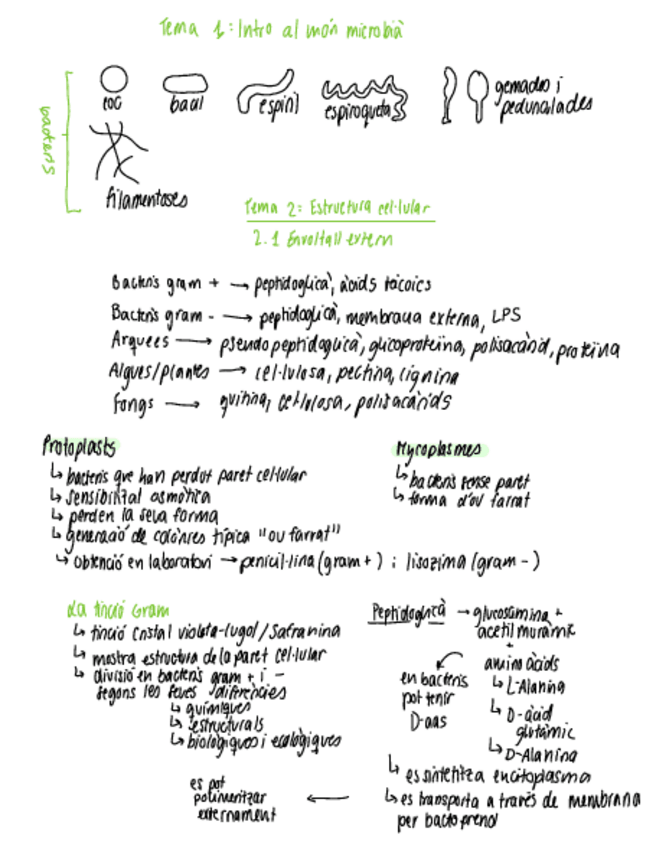 Tema 1: Intro al món microbià
bacteris
coc
bacil
espiril
espiroqueta
gemades i
pedunculades
filamentoses
Tema 2: Estructura cel·lular
2.1 Envoltall extern
Bacteris gram + → peptidoglicà, àcids tèicoics
Bacteris gram - → peptidoglicà, membrana externa, LPS
Arquees → pseudopeptidoglicà, glicoproteïna, polisacàrid, proteïna
Algues/plantes → cel·lulosa, pectina, lignina
Fongs → quitina, cel·lulosa, polisacàrids
Protoplasts
↳ bacteris que han perdut paret cel·lular
↳ sensibilitat osmòtica
↳ perden la seva forma
↳ generació de colònies típica "ou farrat"
↳ obtenció en laboratori → penicil·lina (gram +) i lisozima (gram -)
Mycoplasmes
↳ bacteris sense paret
↳ forma d'ou farrat
La tinció Gram
↳ tinció cristal violeta-lugol/Safranina
↳ mostra estructura de la paret cel·lular
↳ divisió en bacteris gram + i -
segons les seves diferències
↳ químiques
↳ estructurals
↳ biològiques i ecològiques
Peptidoglicà → glucosamina +
acetil muràmic
+
aminoàcids
↳ L-Alanina
↳ D-àcid
glutàmic
↳ D-Alanina
en bacteris
pot tenir
D-aas
↳ es sintetitza en citoplasma
↳ es transporta a través de membrana
per bactoprenol
es pot
polimeritzar
externament